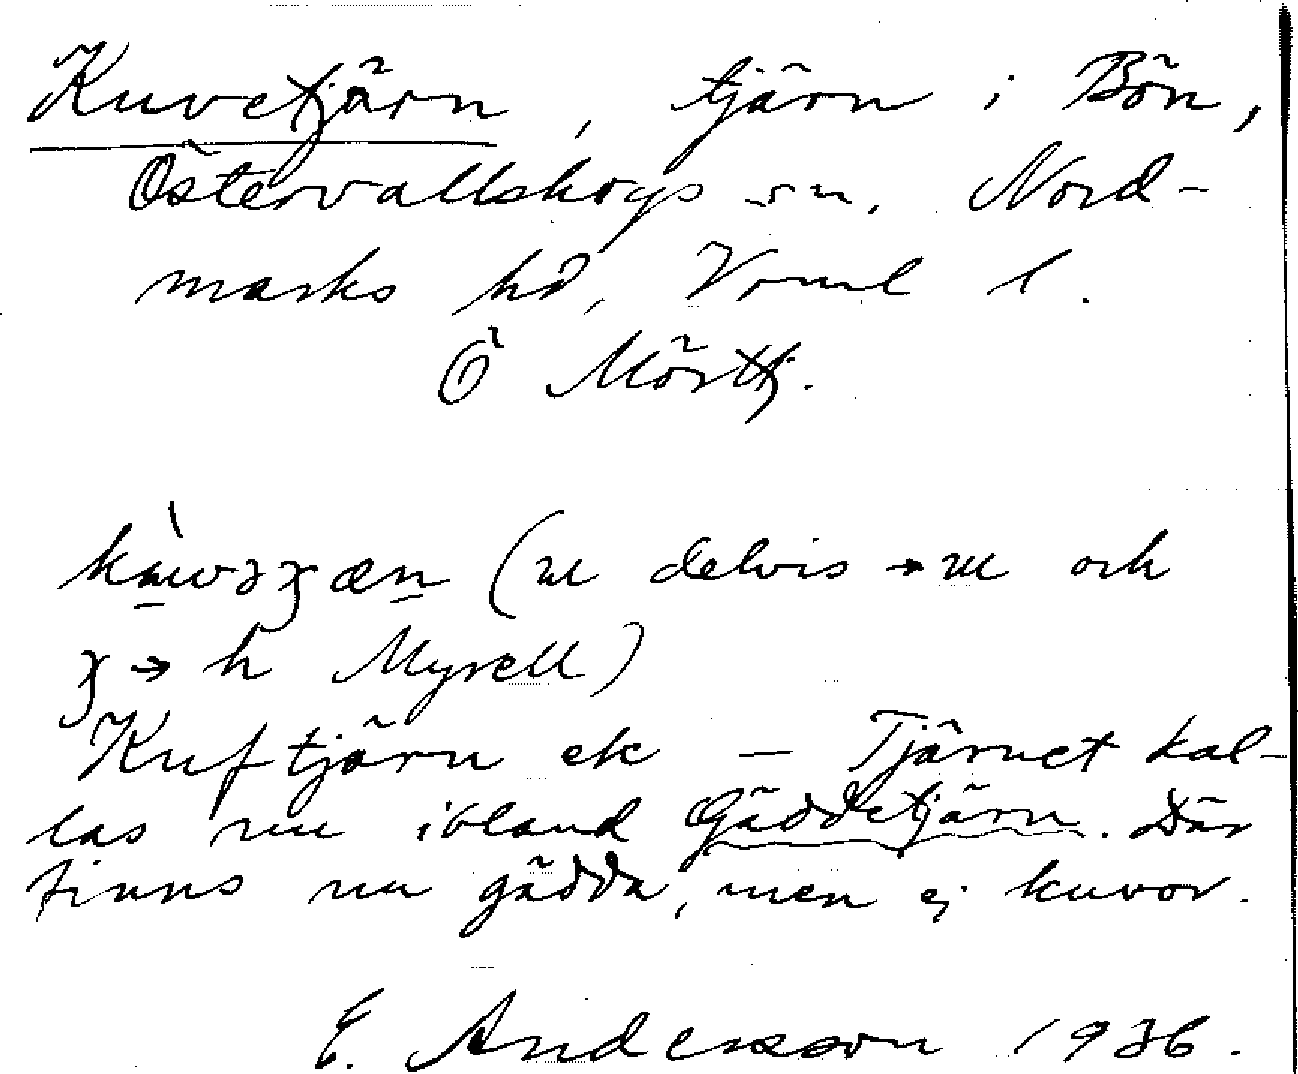 Kuvetjärn, tjärn i Bön,
Östervallskogs sn. Nord-
marks hd, Vrml l.
Ö Mörttj.
(ɯ delvis → ɯ och
ʒ → h Myrell)
Kuftjärn ek — Tjärnet kal-
las nu ibland Gäddetjärn. Där
finns nu gädda, men ej kuvor.
E. Andersson 1936.